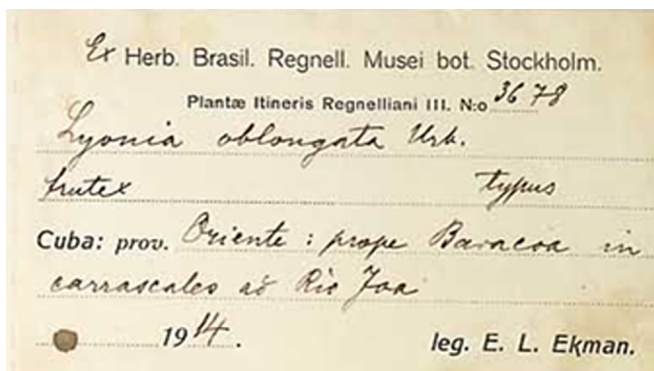 Ex Herb. Brasil. Regnell. Musei bot. Stockholm.
Plantæ Itineris Regnelliani III. N:o 3678
Lyonia oblongata Urb.
frutex typus
Cuba: prov. Oriente: prope Baracoa in
carrascales ad Rio Joa
1914. leg. E. L. Ekman.